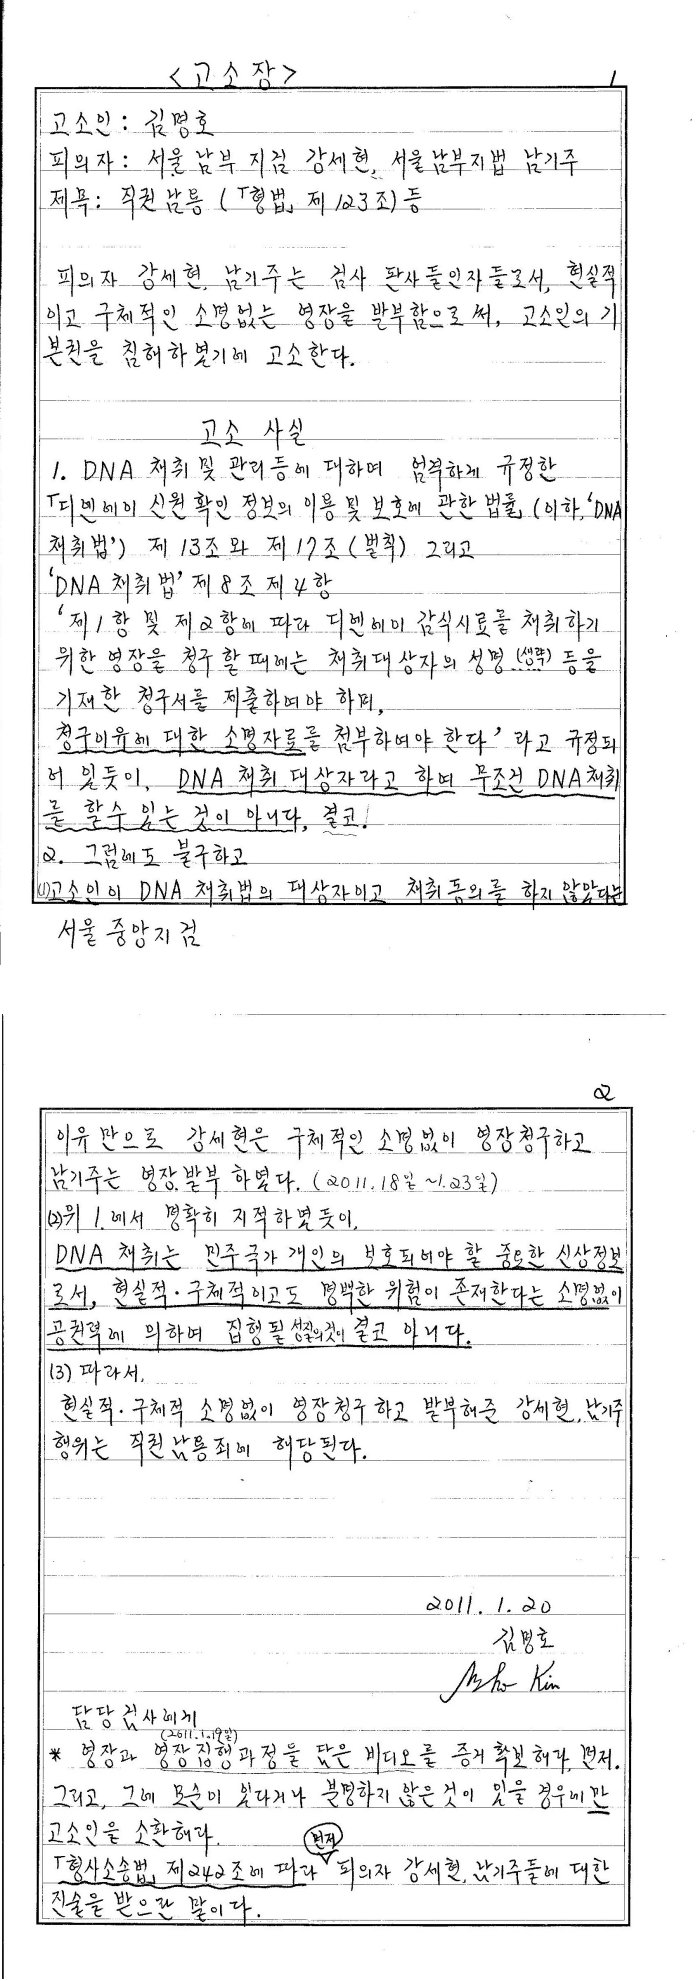 <고소장>
1
고소인: 김명호
피의자: 서울남부지검 강세현, 서울남부지법 남기주
제목: 직권남용 (「형법」 제123조) 등
피의자 강세현, 남기주는 검사 판사들인자들로서, 현실적
이고 구체적인 소명없는 영장을 발부함으로써, 고소인의 기
본권을 침해하였기에 고소한다.
고소 사실
1. DNA 채취 및 관리등에 대하여 엄격하게 규정한
「디엔에이 신원확인 정보의 이용 및 보호에 관한 법률」 (이하, 'DNA
채취법') 제13조와 제17조(벌칙) 그리고
'DNA 채취법' 제8조 제4항
'제1항 및 제2항에 따라 디엔에이 감식시료를 채취하기
위한 영장을 청구할 때에는 채취대상자의 성명 (생략) 등을
기재한 청구서를 제출하여야 하며,
청구이유에 대한 소명자료를 첨부하여야 한다' 라고 규정되
어 있듯이, DNA 채취 대상자라고 하여 무조건 DNA채취
를 할 수 있는 것이 아니다, 결코!
2. 그럼에도 불구하고
(1)고소인이 DNA 채취법의 대상자이고 채취동의를 하지 않았다는
서울중앙지검
2
이유만으로 강세현은 구체적인 소명없이 영장청구하고
남기주는 영장발부 하였다. (2011.18일 ~1.23일)
(2)위 1.에서 명확히 지적하였듯이,
DNA 채취는 민주국가 개인의 보호되어야 할 중요한 신상정보
로서, 현실적·구체적이고도 명백한 위험이 존재한다는 소명없이
공권력에 의하여 집행될 성질의것이 결코 아니다.
(3) 따라서,
현실적·구체적 소명없이 영장청구하고 발부해준 강세현, 남기주
행위는 직권남용죄에 해당된다.
2011. 1. 20
김명호
Kim
담당검사에게
(2011.1.19일)
* 영장과 영장집행과정을 담은 비디오를 증거확보해라, 먼저.
그리고, 그에 모순이 있다거나 분명하지 않은 것이 있을 경우에만
고소인을 소환해라.
먼저
「형사소송법」 제242조에 따라 피의자 강세현, 남기주들에 대한
진술을 받으란 말이다.